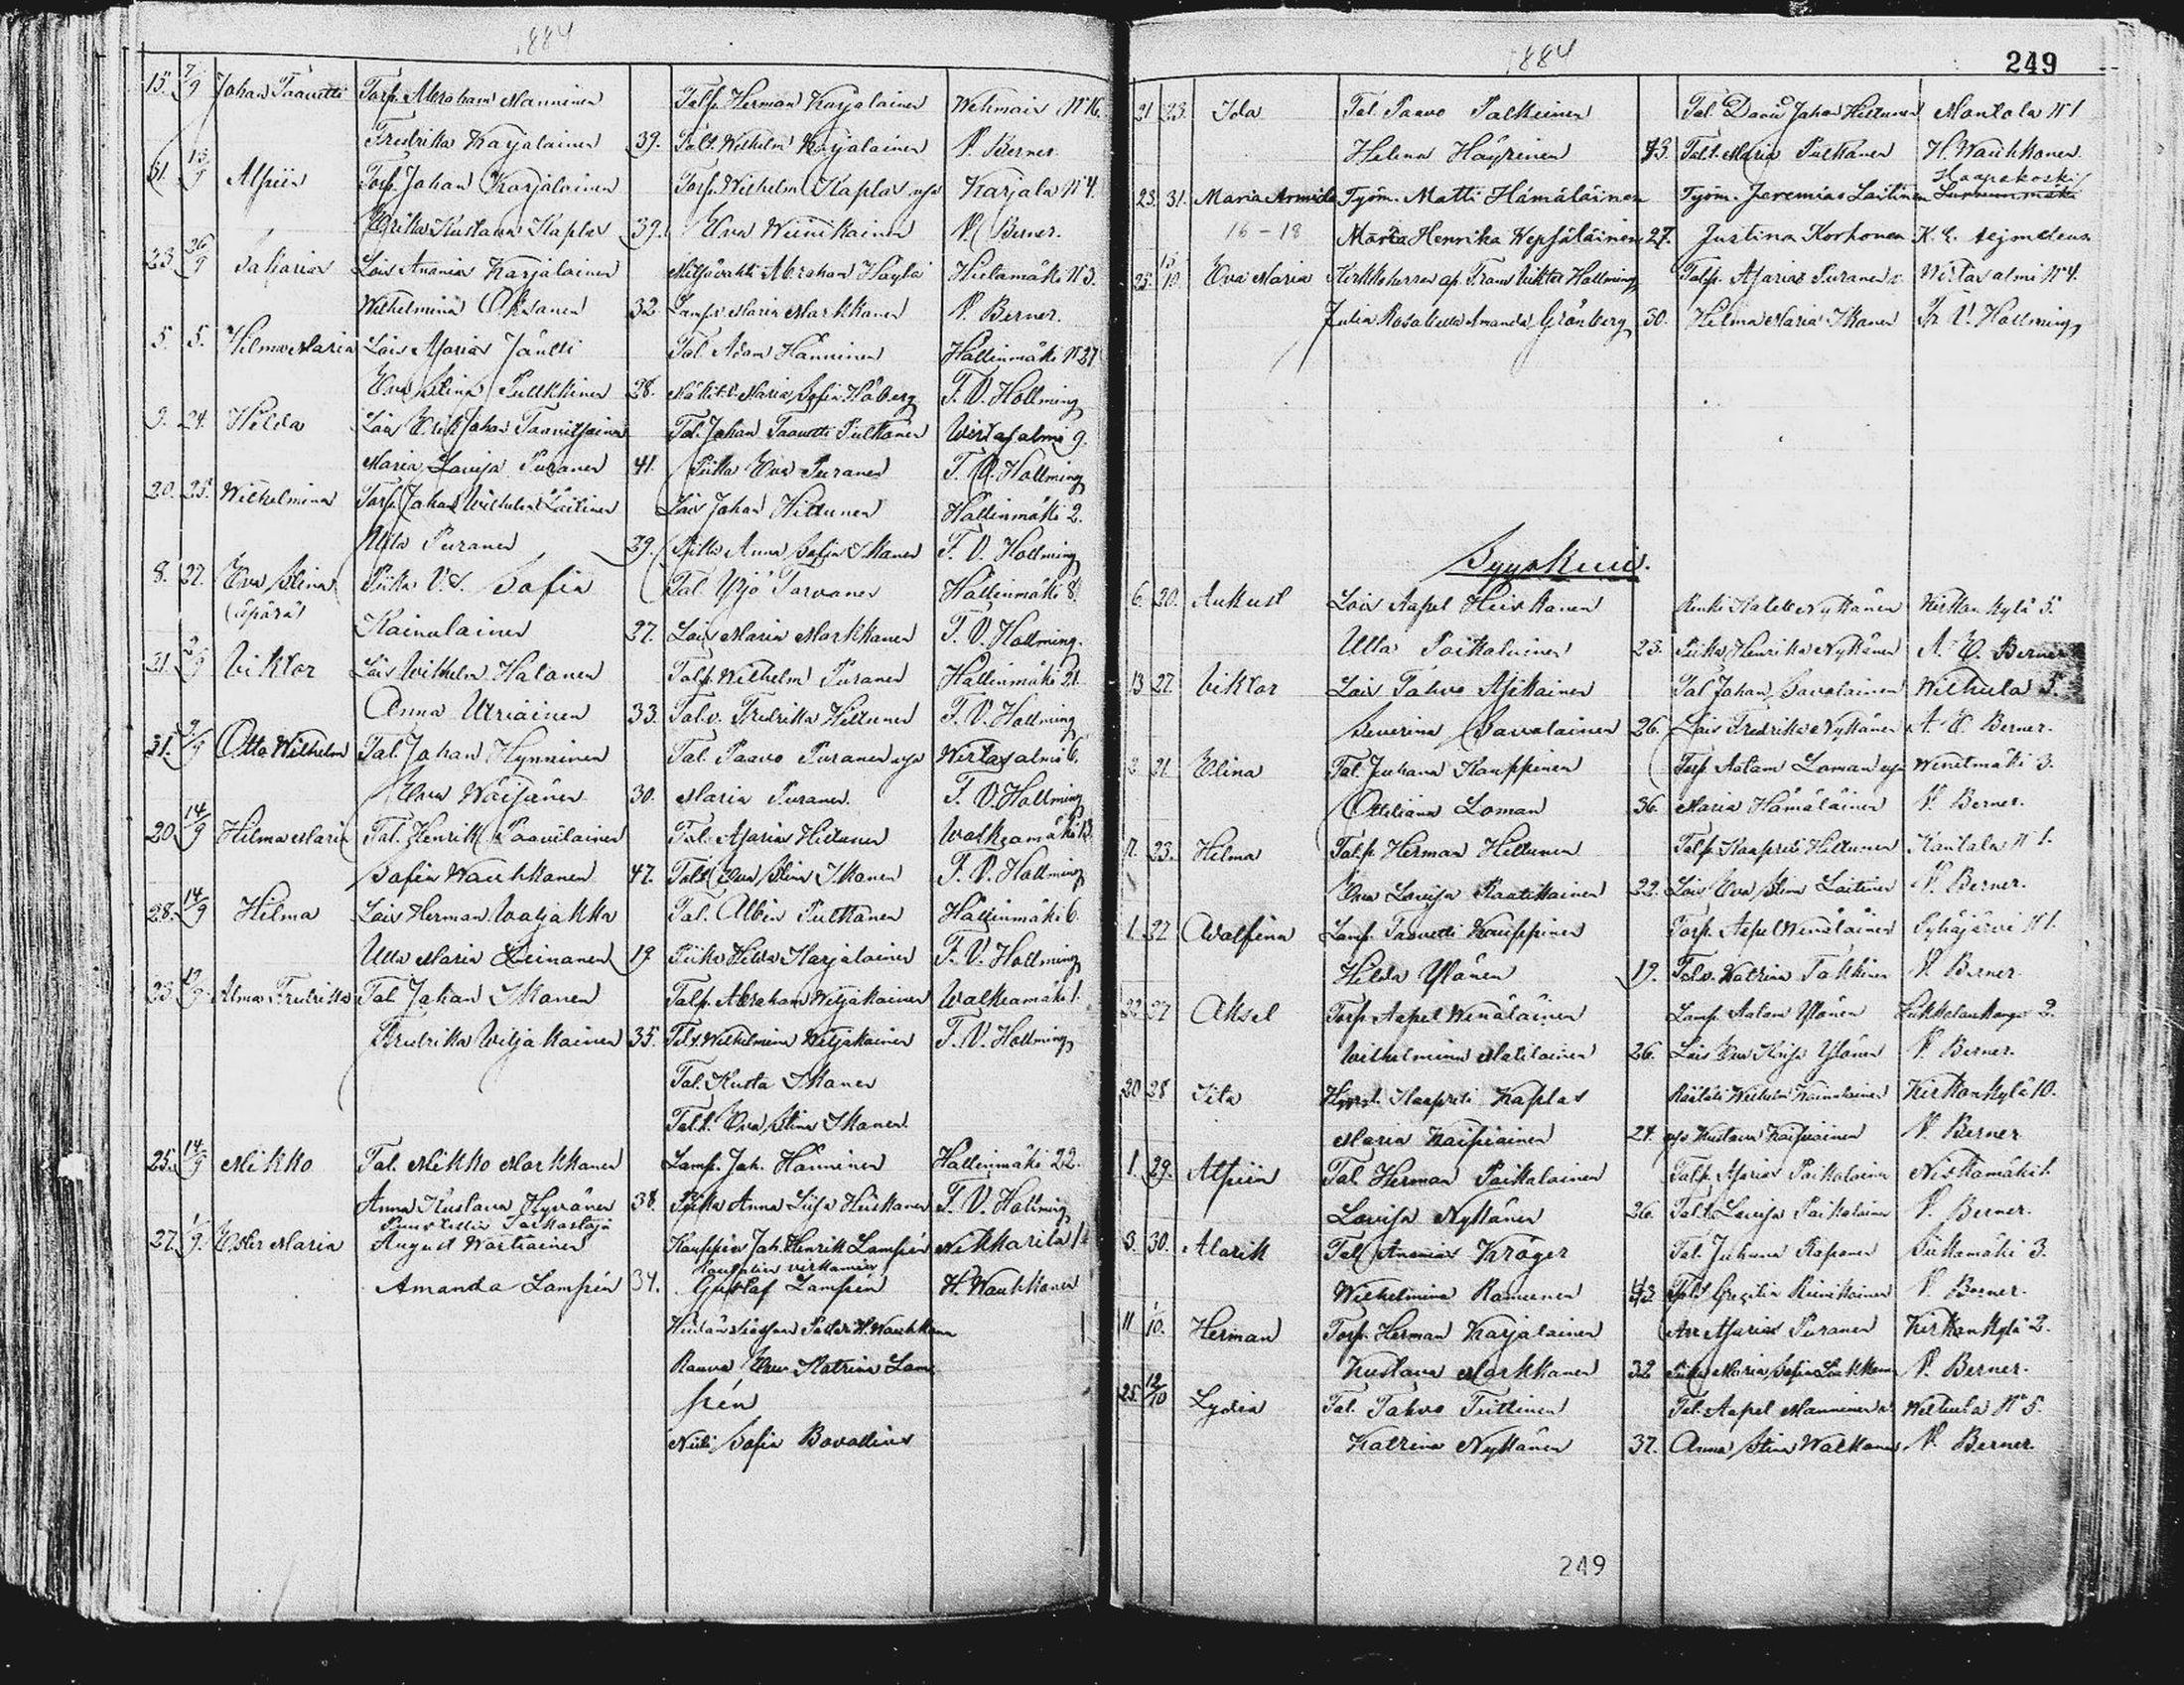 1884
15. 7/9 Johan Taavetti Torp. Abraham Manninen Talp. Herman Karjalainen Wehmais N:o 16.
Fredrika Karjalainen 39. Talt. Wilhelm Karjalainen N. Berner.
31. 15/9 Alpiin Torp. Johan Karjalainen Torp. Wilhelm Kaplas Karjala N:o 4.
Erika Kustava Kaplas 39. Eva Wiinikainen N. Berner.
23 26/9 Sakarias Lois Ananias Karjalainen Abraham Häylä Hietamäki N:o 3.
Wilhelmina Oksanen 32 Maria Markkanen N. Berner.
5. 5. Hilma Maria Lois Asarias Jäntti Tal. Adam Hänninen Hällinmäki N:o 27
Eva Stina Pulkkinen 28. Maria Sofia Håberg F. V. Hollming
9. 24. Hilda Lois Erik Johan Taavitsainen Tal. Johan Taavetti Pulkänen Wirtasalmi 9.
Maria Lovisa Puranen 41. Piika Eva Puranen F. V. Hollming
20. 25. Wilhelmina Torp. Johan Wilhelm Laitinen Lois Johan Hiltunen Hällinmäki 2.
Ulla Puranen 29. Piika Anna Sofia Ikonen F. V. Hollming
8. 27. Eva Stina Piika Sofia Tal. Yrjö Tarvanen Hällinmäki 8.
(äpärä) Kainulainen 27. Lois Maria Markkanen F. V. Hollming.
21. 2/9 Viktor Lois Wilhelm Halonen Talp. Wilhelm Puranen Hällinmäki 21.
Anna Utriainen 33. Tal.v. Fredrika Hiltunen F. V. Hollming
31. 9/9 Otto Wilhelm Tal. Johan Hynninen Tal. Paavo Puranen Wirtasalmi 6.
Eva Wäisänen 30. Maria Puranen. F. V. Hollming
20 14/9 Hilma Maria Tal. Henrik Paavilainen Tal. Asarias Hiltunen Walkeamäki 13.
Sofia Wauhkonen 47. Talt. Eva Stina Ikonen F. V. Hollming
28. 14/9 Hilma Lois Herman Watjakka Tal. Albin Pulkänen Hällinmäki 6.
Ulla Maria Leinonen 19 Piika Hilda Karjalainen F. V. Hollming
23 Alma Fredrika Tal. Johan Ikonen Talp. Abraham Wiljakainen Walkeamäki 1.
Fredrika Wiljakainen 35. Tal.t. Wilhelmina Wiljakainen F. V. Hollming
Tal. Kusta Ikonen
Tal.t. Eva Stina Ikonen.
25. 14/9 Mikko Tal. Mikko Markkanen Lamp. Joh. Hänninen Hällinmäki 22.
Anna Kustava Hyvönen 38. Piika Anna Liisa Hiiskanen F. V. Hollming
27. 1/9. Ester Maria August Wartiainen Kauppias Joh. Henrik Lampén Nikkarila 1
Amanda Lampén 34. Gustaf Lampén H. Wauhkonen
H. Wauhkonen
Rouva Eva Katrina Lam
pén
Neiti Sofia Bovallius
1884
249
21 23. Ida Tal. Paavo Palkeinen Tal. David Johan Hiltunen Montola N:o 1
Helena Häyrinen 43. Tal.t. Maria Pulkänen H. Wauhkonen.
Haapakoski
23. 31. Maria Armida Työm. Matti Hämäläinen Työm. Jeremias Laitinen
16 - 18 Maria Henrika Wepsäläinen 27. Justina Korhonen K. E. Lejmdeus
25. 15/10. Eva Maria Kirkkoherran ap. Frans Viktor Hollming Talp. Asarias Puranen Wirtasalmi N:o 4.
Julia Rosa Bella Amanda Grönberg 30. Hilma Maria Ikonen Fr. V. Hollming
Syyskuu.
6. 20. Aukust Lois Aapel Heiskanen Renki Aalett Nykänen Kirkonkylä 5.
Ulla Paikalainen 23. Piika Henrika Nykänen N. E. Berner
13 27. Viktor Lois Tahvo Asikainen Tal. Johan Savolainen Wilhula 5.
Severina Savolainen 26. Lois Fredrika Nykänen N. E. Berner.
2 21 Elina Tal. Juhana Kauppinen Torp. Aatam Loman Wenetmäki 3.
Ottiliana Loman 36. Maria Hämäläinen N. Berner.
17. 23. Hilma Talp. Herman Hiltunen Talp. Kaapreli Hiltunen Kantala N:o 1.
Eva Lovisa Raatikainen 22. Lois Eva Stina Laitinen N. Berner.
1. 27 Walfina Lamp. Taavetti Kauppinen Torp. Aapel Wenäläinen Pyhäjärvi N:o 1.
Hilda Ylönen 19. Tal.v. Katrina Takkinen N. Berner.
22 27 Aksel Torp. Aapel Wenäläinen Lamp. Aatam Ylönen Lukkalankangas 2.
Wilhelmina Matilainen 26. Lois Eva Kaisa Ylönen N. Berner.
20 28 Iita Kaapreli Kaplas Räätäli Wilhelm Kainulainen Kirkonkylä 10.
Maria Kaipiainen 24. Kustava Kaipiainen N. Berner
1. 29. Alpiin Tal. Herman Paikalainen Talp. Asarias Paikalainen Niskamäki 1.
Lovisa Nykänen 26. Tal.t. Lovisa Paikalainen N. Berner.
3. 30. Alarik Tal. Ananias Kröger Tal. Juhana Kaponen Siikamäki 3.
Wilhelmina Ramunen 43. N. Berner.
11 1/10. Herman Torp. Herman Karjalainen Asarias Puranen Kirkonkylä 2.
Kustava Markkanen 32 Maria Sofia Laukkanen N. Berner.
25. 12/10 Lydia Tal. Tahvo Tuttinen Tal. Aapel Manninen Wilhula N:o 5.
Katrina Nykänen 37. Anna Stina Walkonen N. Berner.
249